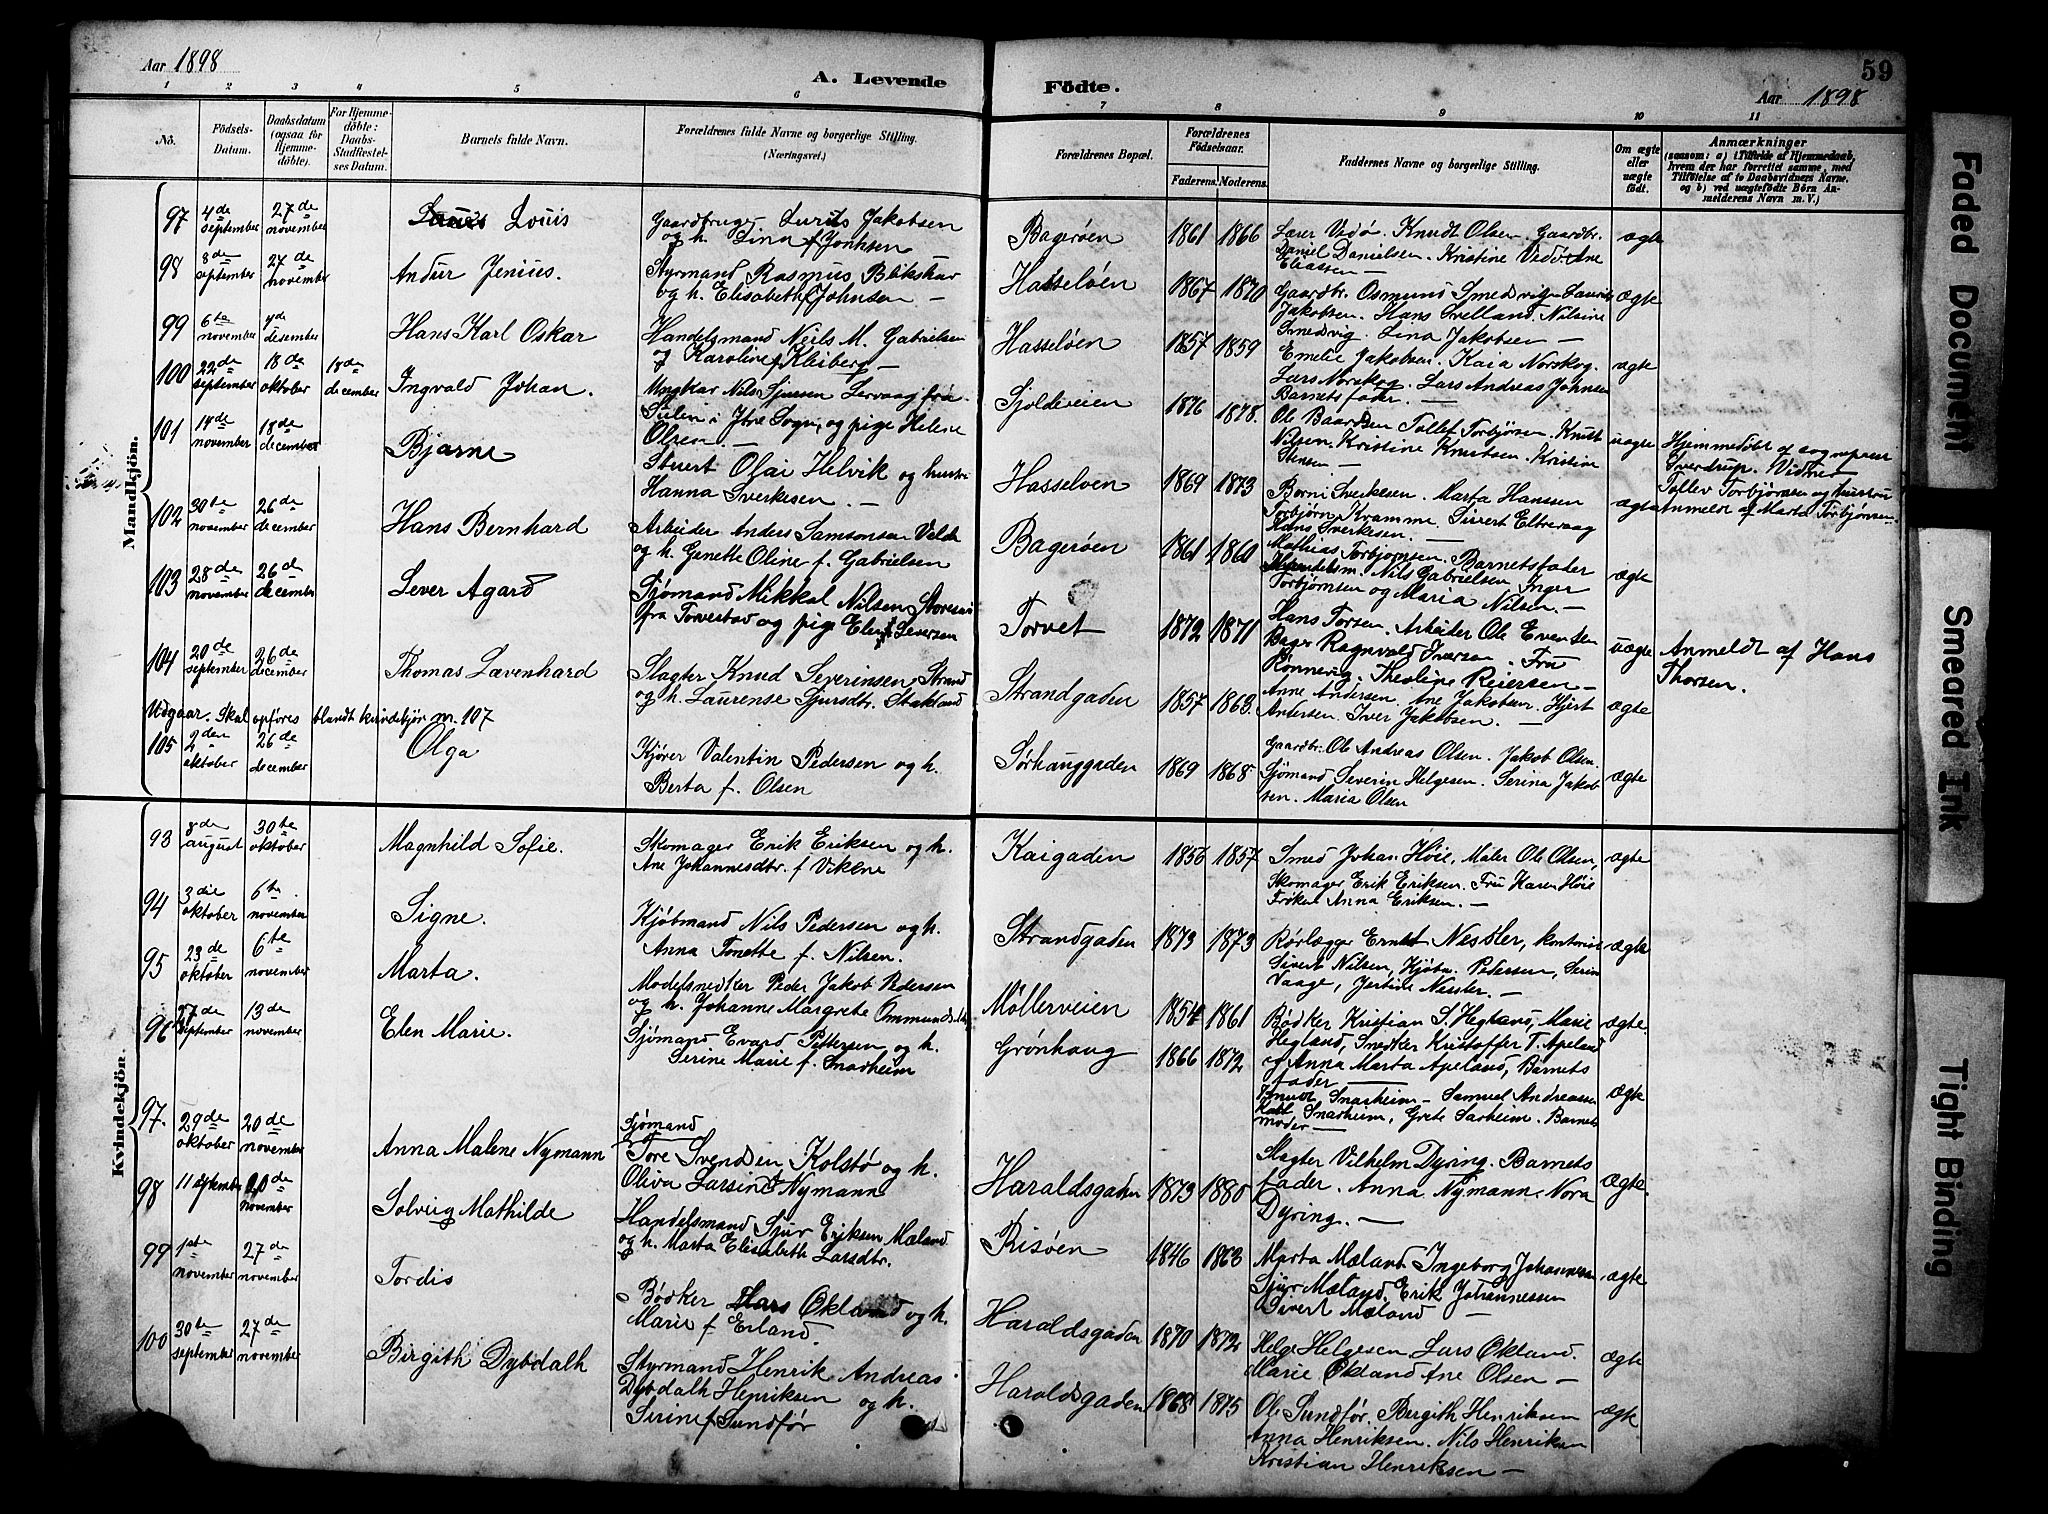 Aar 1898
A. Levende Födte.
Aar 1898
59
1 2 3 4 5 6 7 8 9 10 11
No.
Födsels-Datum.
Daabsdatum (ogsaa för Hjemmedöbte).
For Hjemmedöbte: Daabs-Stadfæstelses Datum.
Barnets fulde Navn.
Forældrenes fulde Navne og borgerlige Stilling.
(Næringsvei.)
Forældrenes Bopæl.
Forældrenes Födselsaar.
Faderens. Moderens.
Faddernes Navne og borgerlige Stilling.
Om ægte eller uægte födt.
Anmærkninger
(saasom: a) i Tilfælde af Hjemmedaab, hvem der har forrettet samme, med Tilföielse af to Daabsvidners Navne, og b) ved uægtefödte Börn Anmelderens Navn m. V.)
Mandkjön.
97 4de september 27de november Louis
Gaardbruger Lurits Jakobsen
og h. Lina f Jonhsen
Bagerøen 1861 1866
Lærer Vedø. Knudt Olsen. Gaardbr.
Daniel Danielsen. Kristine Vedø. Ane
Eliassen —
ægte
98 8de september 27de november Andur Jenius.
Styrmand Rasmus Blikshar
og h. Elisabeth f Johnsen —
Hasseløen 1867 1870
Gaardbr. Osmund Smedvig. Laurits
Jakobsen. Hans Svelland. Nilsine
Smedvig. Lina Jakobsen —
ægte
99 6te november 4de desember Hans Karl Oskar
Handelsmand Neils M. Gabrielsen
og Karoline f Kleiberg —
Hasseløen 1857 1859
Emelie Jakobsen. Kaia Norskog.
Lars Norskog. Lars Andreas Johnsen
Barnets fader. —
ægte
100 22de september 18de oktober 18de december Ingvald Johan.
Ungkar Nils Sjursen Lervaag fra
Sulen i Ytre Sogn, og pige Helene
Olsen. —
Sjoldeveien 1876 1878.
Ole Baardsen Tollef Torbjørsen. Knut
Nilsen. Kristine Knutsen. Kristine
Stensen —
uægte
Hjemmedøbt af sognepræst
Sverdrup. Vidner
Tollev Torbjørnsen og hustru
Anmeldt af Marta Torbjørnsen.
101 14de november 18de december Bjarne
Stuert Olai Helvik og hustru
Hanna Sverkesen. —
Hasseløen 1869 1873
Børni Sverkesen. Marta Hansen
Torbjørn Kvamme. Sivert Eltrevaag
Hans Sverkesen. —
ægte
102 30te november 26de december Hans Bernhard
Arbeider Anders Samsonsen Velde
og h. Genette Oline f. Gabrielsen
Bagerøen 1861 1860
Mathias Torbjørnsen. Barnetsfader
Handelsm. Nils Gabrielsen Inger
Torbjørnsen og Maria Nilsen. —
ægte
103 28de november 26de december Sever Agard
Sjømand Mikkal Nilsen Storesun
fra Torvestad og pige Elen Seversen
Torvet 1872 1871
Hans Torsen. Arbeider Ole Evensen
Bager Ragnvald Iversen. Fru
Rønnevig. Theoline Reiersen —
uægte
Anmeldt af Hans
Thorsen.
104 20de september 26de december Thomas Lævenhard
Slagter Knud Severinsen Strand
og h. Laurense Sjursdt. Stakland
Strandgaden 1857 1863.
Anne Andersen. Ane Jakobsen. Hjert
Andersen. Iver Jakobsen. —
ægte
Udgaar. Skal opføres blandt kvindekjøn no. 107
105 2den oktober 26de december Olga
Kjører Valentin Pedersen og h.
Berta f. Olsen
Sørhauggaden 1869 1868
Gaardbr. Ole Andreas Olsen. Jakob Olsen.
Sjømand Severin Helgesen. Serina Jakob
sen. Maria Olsen
ægte
Kvindekjön.
93 8de august 30te oktober Magnhild Sofie.
Skomager Erik Eriksen og h.
Ane Johannesdtr. f Vikene
Kaigaden 1856 1857
Smed Johan Høie, Maler Ole Olsen,
Skomager Erik Eriksen. Fru Karen Høie
Frøken Anna Eriksen. —
ægte
94 3die oktober 6te november Signe.
Kjøbmand Nils Pedersen og h.
Anna Tonette f. Nilsen.
Strandgaden 1873 1873
Rørlægger Ernst Nessler, kontorist
Sivert Nilsen, Kjøbm. Pedersen, Serine
Vaage, Jertine Nessler. —
ægte
95 23de oktober 6te november Marta.
Modelsnedker Peder Jakob Pedersen
og h. Johanne Margrete Ommundsdtr
Møllerveien 1854 1861
Bødker Kristian S. Hegland, Marie
Hegland, Snedker Kristoffer T. Apeland
og Anna Marta Apeland, Barnets
fader —
ægte
96 27de september 13de november Elen Marie.
Sjømand Evard Pettersen og h.
Serine Marie f. Snarheim
Grønhaug 1866 1872
Snarheim — Samuel Andreassen
Snarheim, Grete Sarheim. Barnets
moder —
ægte
97. 29de oktober 20de november Anna Malene Nymann
Sjømand
Tore Svendsen Kolstø og h.
Oliva Larsine Nymann
Haraldsgaden 1873 1880
Slagter Vilhelm Dyring. Barnets
fader. Anna Nymann. Nora
Dyring. —
ægte
98 11 september 20de november Solveig Mathilde
Handelsmand Sjur Eriksen Mæland
og h. Marta Elisabeth Larsdtr.
Risøen 1846 1863
Marta Mæland. Ingeborg Johannesen
Sjur Mæland. Erik Johannessen
Sivert Mæland —
ægte
99 1ste november 27de november Tordis
Bødker Lars Økland og h.
Marie f Erland.
Haraldsgaden 1870 1872
Helge Helgesen. Lars Økland.
Marie Økland Ane Olsen —
ægte
100 30te september 27de november Birgith Dybdalh
Styrmand Henrik Andreas
Dybdalh Henriksen og h.
Serine f Sundfør
Haraldsgaden 1868 1875
Ole Sundfør. Bergith Henriksen
Anna Henriksen. Nils Henriksen
Kristian Henriksen —
ægte
Faded Document
Smeared Ink
Tight Binding